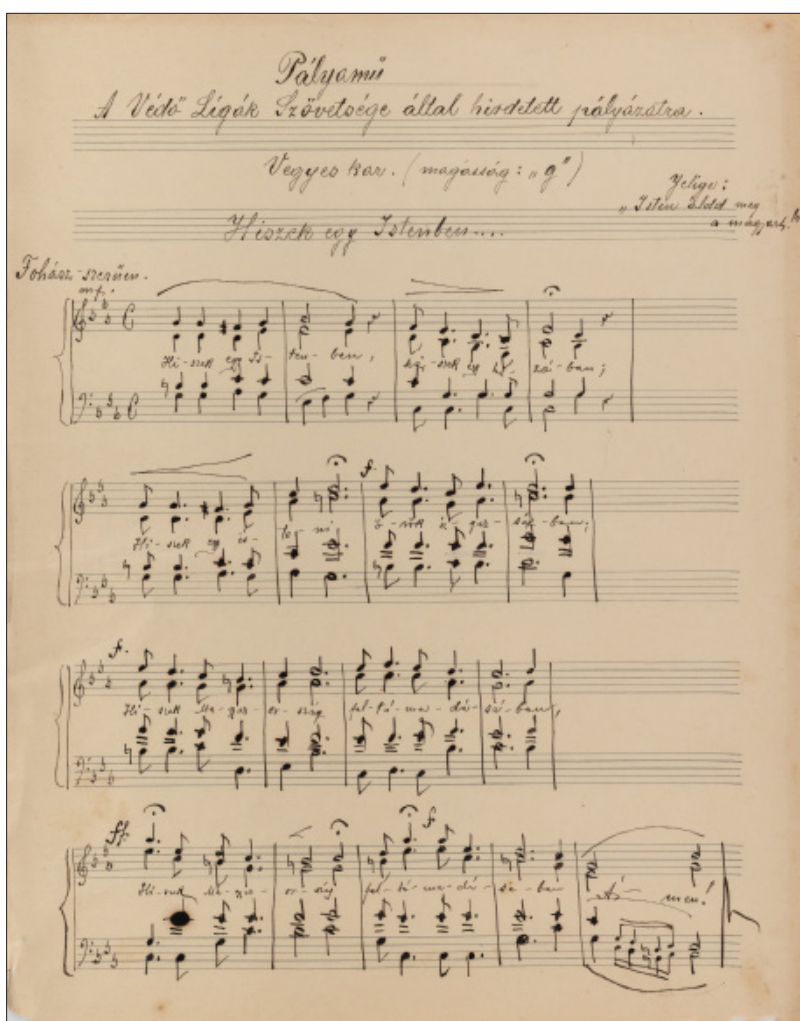 Pályamű
A Védő Ligák Szövetsége által hirdetett pályázatra.
Vegyes kar. (magasság: „g")
Jelige:
„Isten áldd meg
a magyart."
Hiszek egy Istenben....
Fohász-szerűen.
mf.
Hi-szek egy Is-ten-ben, hi-szek egy ha-zá-ban;
f.
Hi-szek egy is-te-ni ö-rök i-gaz-ság-ban;
f.
Hi-szek Ma-gyar-or-szág fel-tá-ma-dá-sá-ban,
ff. f
Hi-szek Ma-gyar-or-szág fel-tá-ma-dá-sá-ban Á-men!